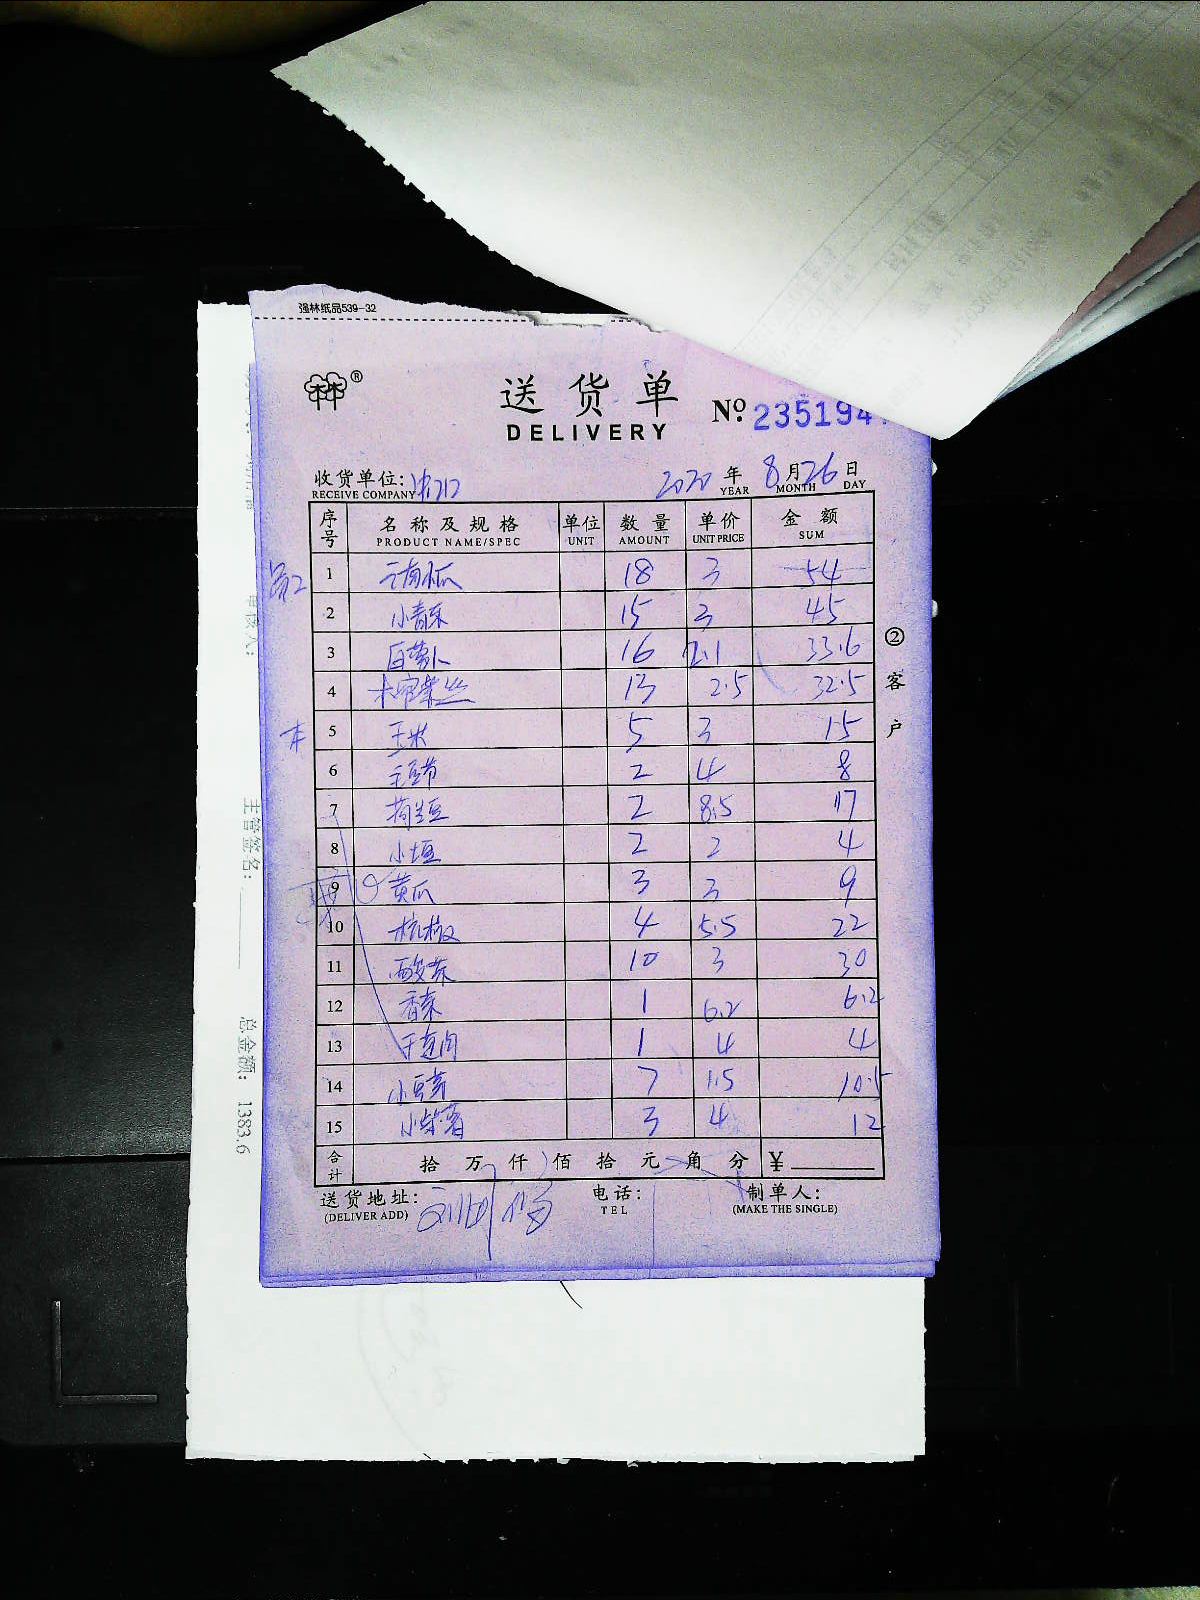 强林纸品539-32
®
送货单
DELIVERY
№ 235194
收货单位:
RECEIVE COMPANY
2020 年 8 月 26 日
YEAR MONTH DAY
序号 名称及规格 单位 数量 单价 金额
PRODUCT NAME/SPEC UNIT AMOUNT UNIT PRICE SUM
1 18 3 54
2 小青菜 15 3 45
3 白萝卜 16 2.1 33.6
4 13 2.5 32.5
5 玉米 5 3 15
6 2 4 8
7 荷兰豆 2 8.5 17
8 2 2 4
9 黄瓜 3 3 9
10 杭椒 4 5.5 22
11 酸菜 10 3 30
12 香菜 1 6.2 6.2
13 1 4 4
14 小豆芽 7 1.5 10.5
15 小紫薯 3 4 12
合计 拾 万 仟 佰 拾 元 角 分 ¥
送货地址: 电话: 制单人:
(DELIVER ADD) TEL (MAKE THE SINGLE)
② 客户
主管签名:
总金额: 1383.6